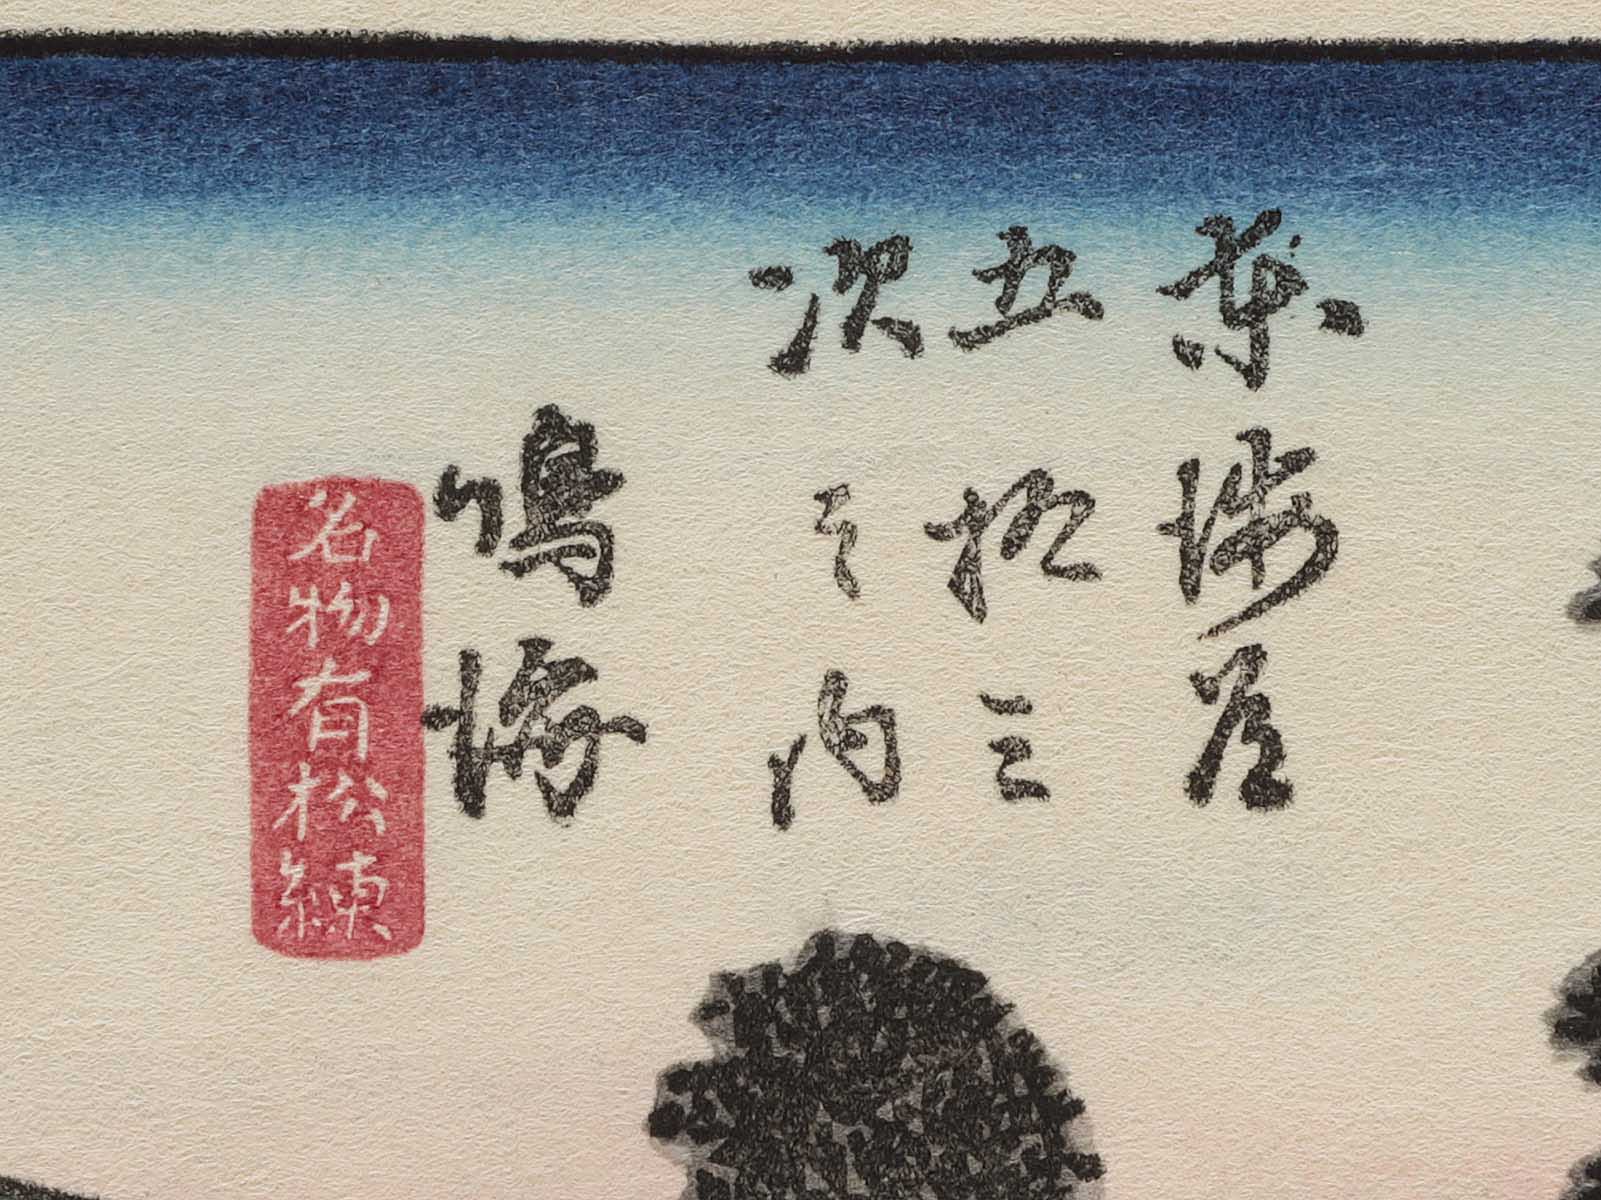 東海道
五拾三
次之内
鳴海
名物有松練